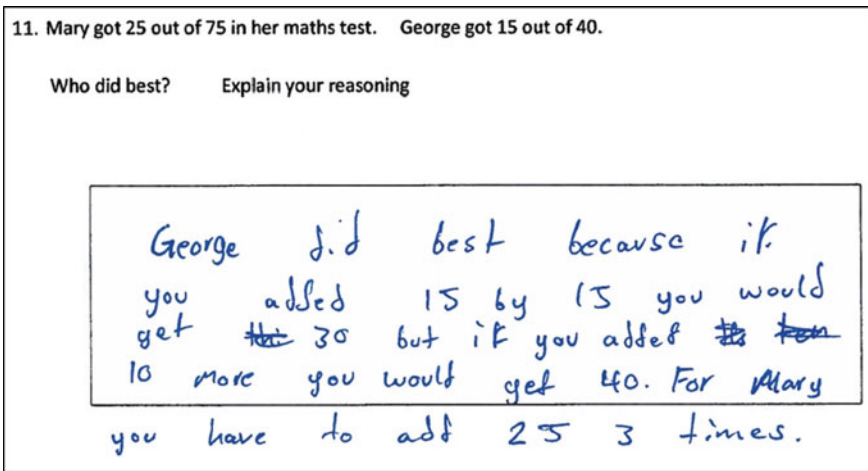 11. Mary got 25 out of 75 in her maths test. George got 15 out of 40.
Who did best? Explain your reasoning
George did best because if
you added 15 by 15 you would
get 30 but if you added
10 more you would get 40. For Mary
you have to add 25 3 times.